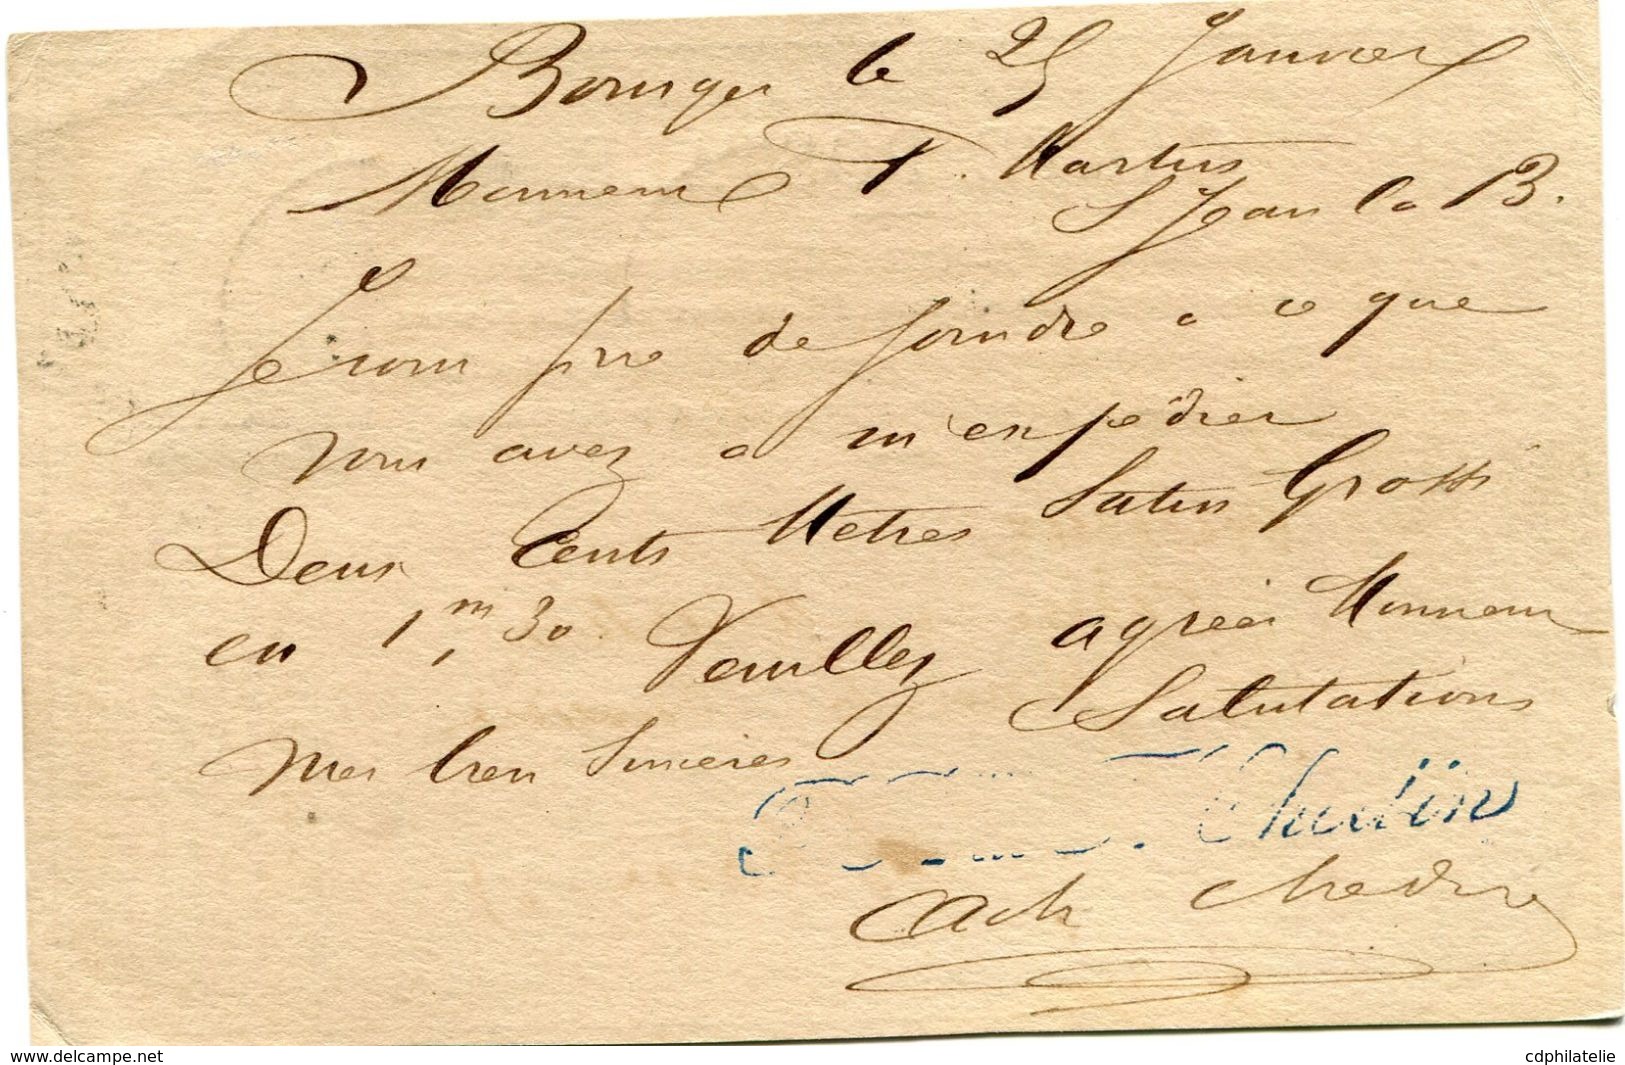 Bourges le 25 Janvier
Monsieur F. Martin
St Jean la B.
Je vous prie de joindre a ce que
vous avez a m'expédier
Deux Cents Metres Satin Gros
en 1m,30. Veuillez agréer Monsieur
mes bien Sincères Salutations
Chédin
Ach Chedin
www.delcampe.net
cdphilatelie